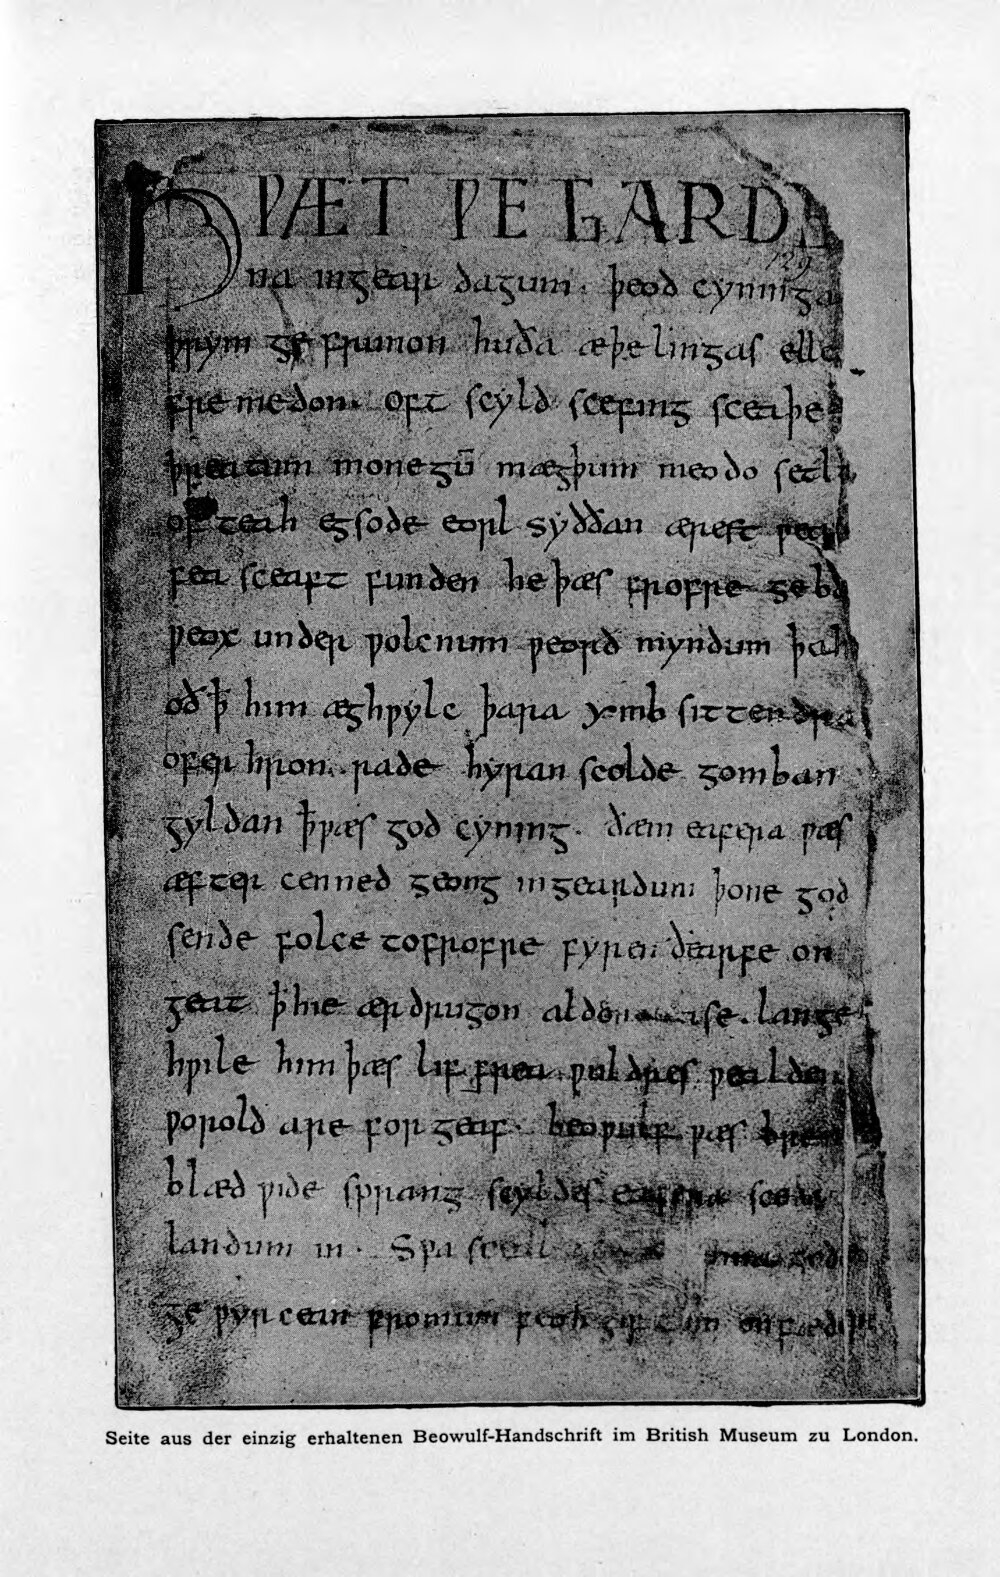 HǷÆT ǷE GARDE
129
na ingear dagum. þeod cyninga
þrym ge frunon huða æþelingas elle
fremedon. oft scyld scefing sceaþe
þreatum monegū mægþum meodo setla
of teah egsode eorl syððan ærest ƿear
fea sceaft funden he þæs frofre geba
ƿeox under ƿolcnum ƿeorð myndum þah
oð ꝥ him æghƿylc þara ymb sittendra
ofer hron rade hyran scolde gomban
gyldan ꝥ ƿæs god cyning. ðæm eafera ƿæs
æfter cenned geong ingeardum þone god
sende folce tofrofre fyren ðearfe on
geat ꝥ hie ær drugon aldor ase. lange
hƿile him þæs lif frea ƿuldres ƿealdend
ƿorold are for geaf. beoƿulf ƿæs breme
blæd ƿide sprang scyldes eafera scede
landum in. Sƿa sceal god
ge ƿyrcean fromum feoh giftum on fæder
Seite aus der einzig erhaltenen Beowulf-Handschrift im British Museum zu London.